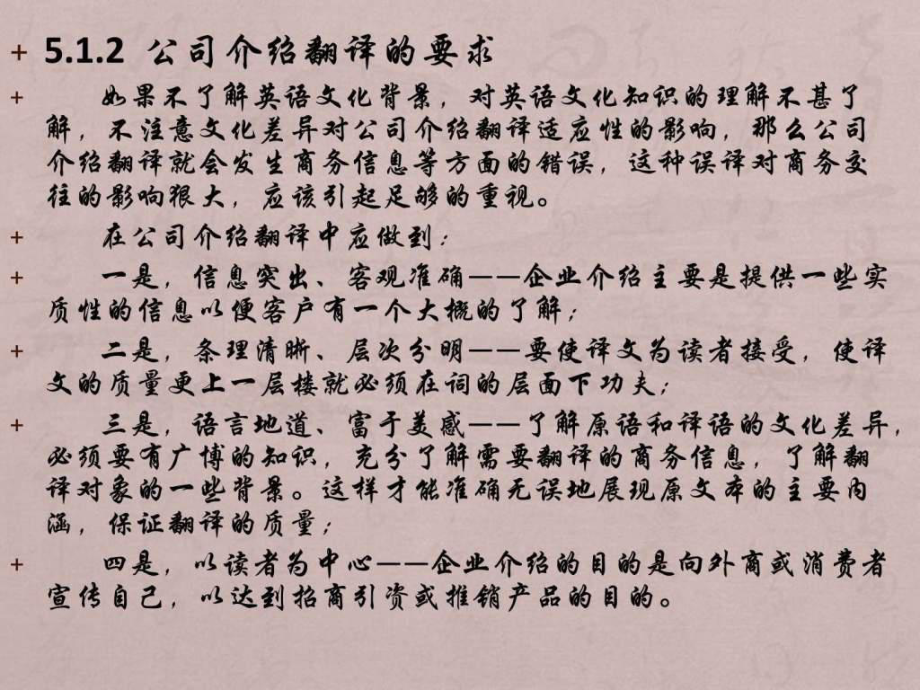 5.1.2 公司介绍翻译的要求
如果不了解英语文化背景，对英语文化知识的理解不甚了
解，不注意文化差异对公司介绍翻译适应性的影响，那么公司
介绍翻译就会发生商务信息等方面的错误，这种误译对商务交
往的影响狠大，应该引起足够的重视。
在公司介绍翻译中应做到：
一是，信息突出、客观准确——企业介绍主要是提供一些实
质性的信息以便客户有一个大概的了解；
二是，条理清晰、层次分明——要使译文为读者接受，使译
文的质量更上一层楼就必须在词的层面下功夫；
三是，语言地道、富于美感——了解原语和译语的文化差异，
必须要有广博的知识，充分了解需要翻译的商务信息，了解翻
译对象的一些背景。这样才能准确无误地展现原文本的主要内
涵，保证翻译的质量；
四是，以读者为中心——企业介绍的目的是向外商或消费者
宣传自己，以达到招商引资或推销产品的目的。